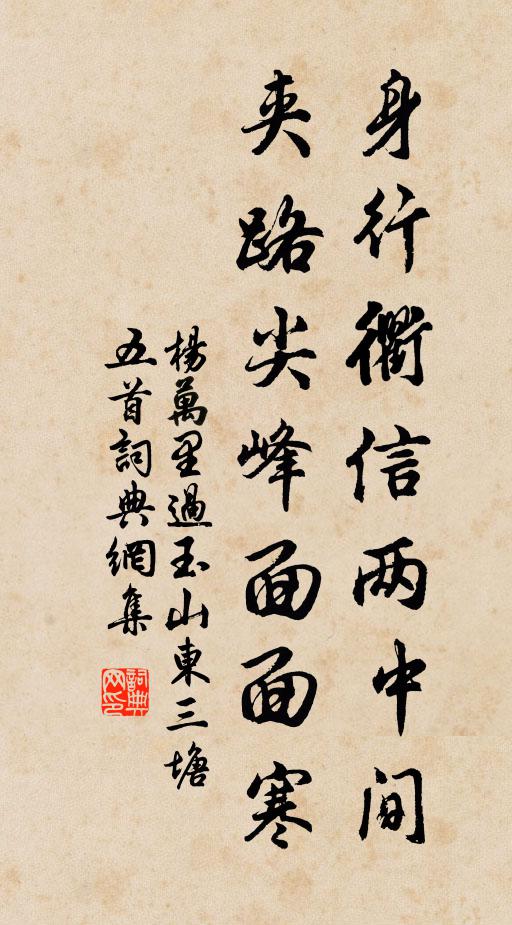 身行衢信两中间
夹路尖峰面面寒
楊萬里過玉山東三塘
五首詞典網集
詞典
网印